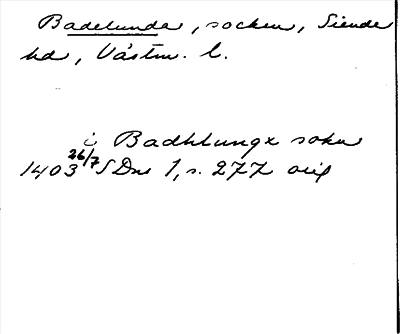 Badelunda, socken, Siende
hd, Västm. l.
i Badhlungx sokn
1403 26/7 SDns 1, s. 277 orig